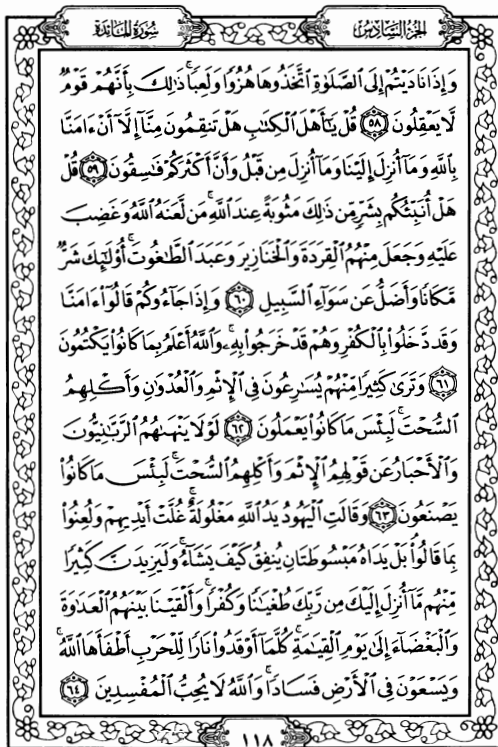 الجزء السادس
سورة المائدة
وَإِذَا نَادَيْتُمْ إِلَى الصَّلَوٰةِ اتَّخَذُوهَا هُزُوًا وَلَعِبًا ۚ ذَٰلِكَ بِأَنَّهُمْ قَوْمٌ
لَّا يَعْقِلُونَ ٥٨ قُلْ يَٰٓأَهْلَ الْكِتَٰبِ هَلْ تَنقِمُونَ مِنَّآ إِلَّآ أَنْ ءَامَنَّا
بِاللَّهِ وَمَآ أُنزِلَ إِلَيْنَا وَمَآ أُنزِلَ مِن قَبْلُ وَأَنَّ أَكْثَرَكُمْ فَٰسِقُونَ ٥٩ قُلْ
هَلْ أُنَبِّئُكُم بِشَرٍّ مِّن ذَٰلِكَ مَثُوبَةً عِندَ اللَّهِ ۚ مَن لَّعَنَهُ اللَّهُ وَغَضِبَ
عَلَيْهِ وَجَعَلَ مِنْهُمُ الْقِرَدَةَ وَالْخَنَازِيرَ وَعَبَدَ الطَّٰغُوتَ ۚ أُو۟لَٰٓئِكَ شَرٌّ
مَّكَانًا وَأَضَلُّ عَن سَوَآءِ السَّبِيلِ ٦٠ وَإِذَا جَآءُوكُمْ قَالُوٓا۟ ءَامَنَّا
وَقَد دَّخَلُوا۟ بِالْكُفْرِ وَهُمْ قَدْ خَرَجُوا۟ بِهِۦ ۚ وَاللَّهُ أَعْلَمُ بِمَا كَانُوا۟ يَكْتُمُونَ
٦١ وَتَرَىٰ كَثِيرًا مِّنْهُمْ يُسَٰرِعُونَ فِى الْإِثْمِ وَالْعُدْوَٰنِ وَأَكْلِهِمُ
السُّحْتَ ۚ لَبِئْسَ مَا كَانُوا۟ يَعْمَلُونَ ٦٢ لَوْلَا يَنْهَىٰهُمُ الرَّبَّٰنِيُّونَ
وَالْأَحْبَارُ عَن قَوْلِهِمُ الْإِثْمَ وَأَكْلِهِمُ السُّحْتَ ۚ لَبِئْسَ مَا كَانُوا۟
يَصْنَعُونَ ٦٣ وَقَالَتِ الْيَهُودُ يَدُ اللَّهِ مَغْلُولَةٌ ۚ غُلَّتْ أَيْدِيهِمْ وَلُعِنُوا۟
بِمَا قَالُوا۟ ۘ بَلْ يَدَاهُ مَبْسُوطَتَانِ يُنفِقُ كَيْفَ يَشَآءُ ۚ وَلَيَزِيدَنَّ كَثِيرًا
مِّنْهُم مَّآ أُنزِلَ إِلَيْكَ مِن رَّبِّكَ طُغْيَٰنًا وَكُفْرًا ۚ وَأَلْقَيْنَا بَيْنَهُمُ الْعَدَٰوَةَ
وَالْبَغْضَآءَ إِلَىٰ يَوْمِ الْقِيَٰمَةِ ۚ كُلَّمَآ أَوْقَدُوا۟ نَارًا لِّلْحَرْبِ أَطْفَأَهَا اللَّهُ ۚ
وَيَسْعَوْنَ فِى الْأَرْضِ فَسَادًا ۚ وَاللَّهُ لَا يُحِبُّ الْمُفْسِدِينَ ٦٤
١١٨